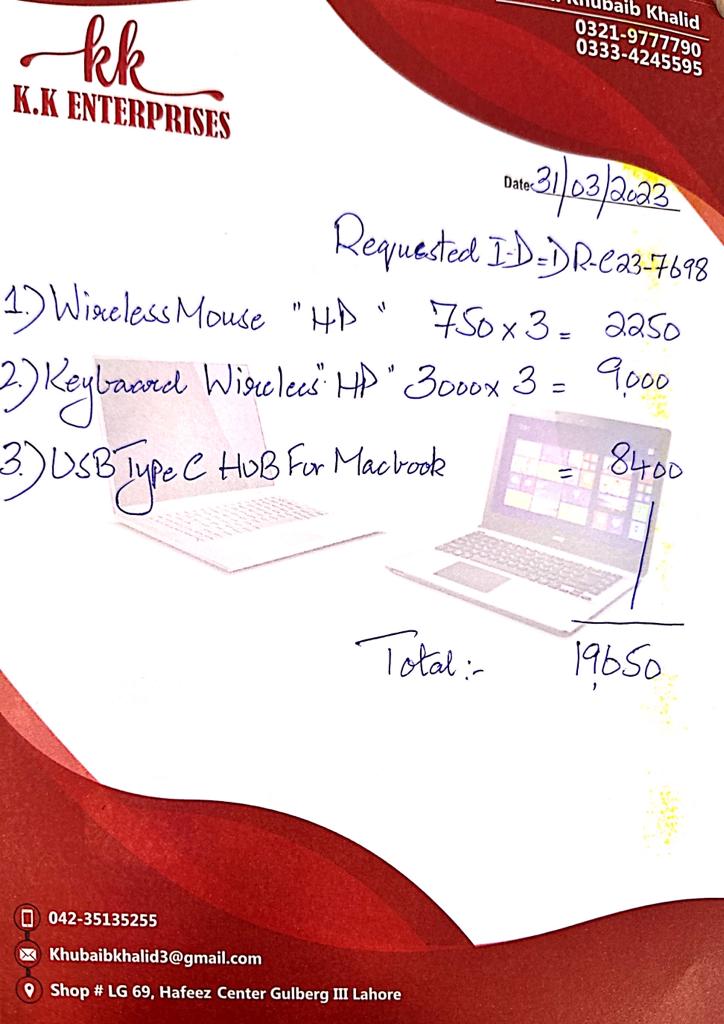 Khubaib Khalid
0321-9777790
0333-4245595
kk
K.K ENTERPRISES
Date 31/03/2023
Requested I-D=DR-C23-7698
1.) Wireless Mouse "HP" 750 x 3 = 2250
2.) Keyboard Wireless "HP" 3000 x 3 = 9,000
3.) USB Type C HUB For Macbook = 8400
Total:- 19,650
042-35135255
Khubaibkhalid3@gmail.com
Shop # LG 69, Hafeez Center Gulberg III Lahore